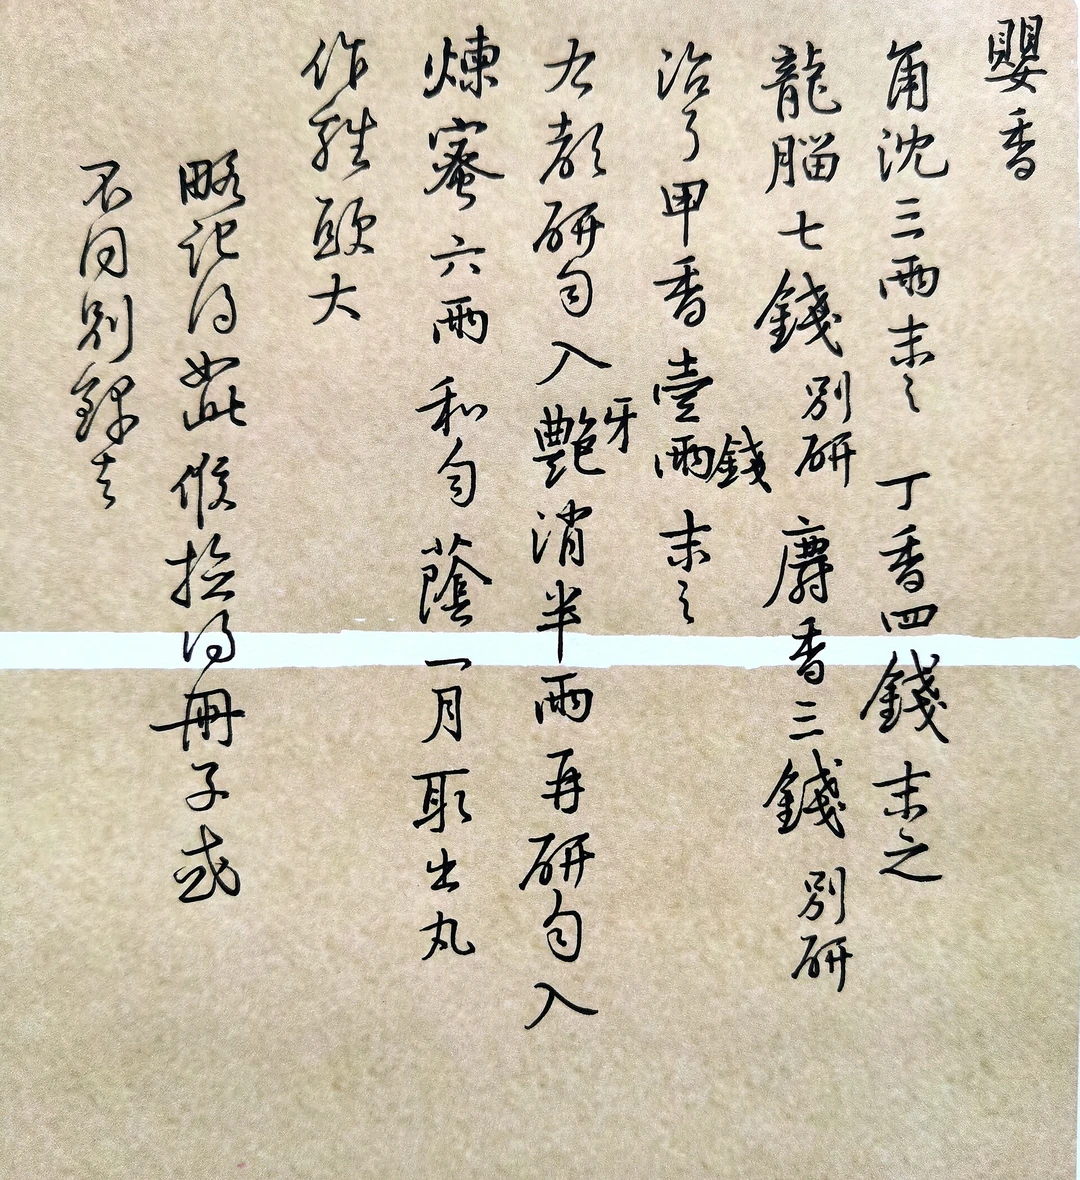 嬰香
角沈三兩末之 丁香四錢末之
龍腦七錢別研 麝香三錢別研
治了甲香壹兩錢末之
右都研勻入艷牙消半兩再研勻入
煉蜜六兩和勻蔭一月取出丸
作雞頭大
略記得如此候撿得冊子或
不同別錄去